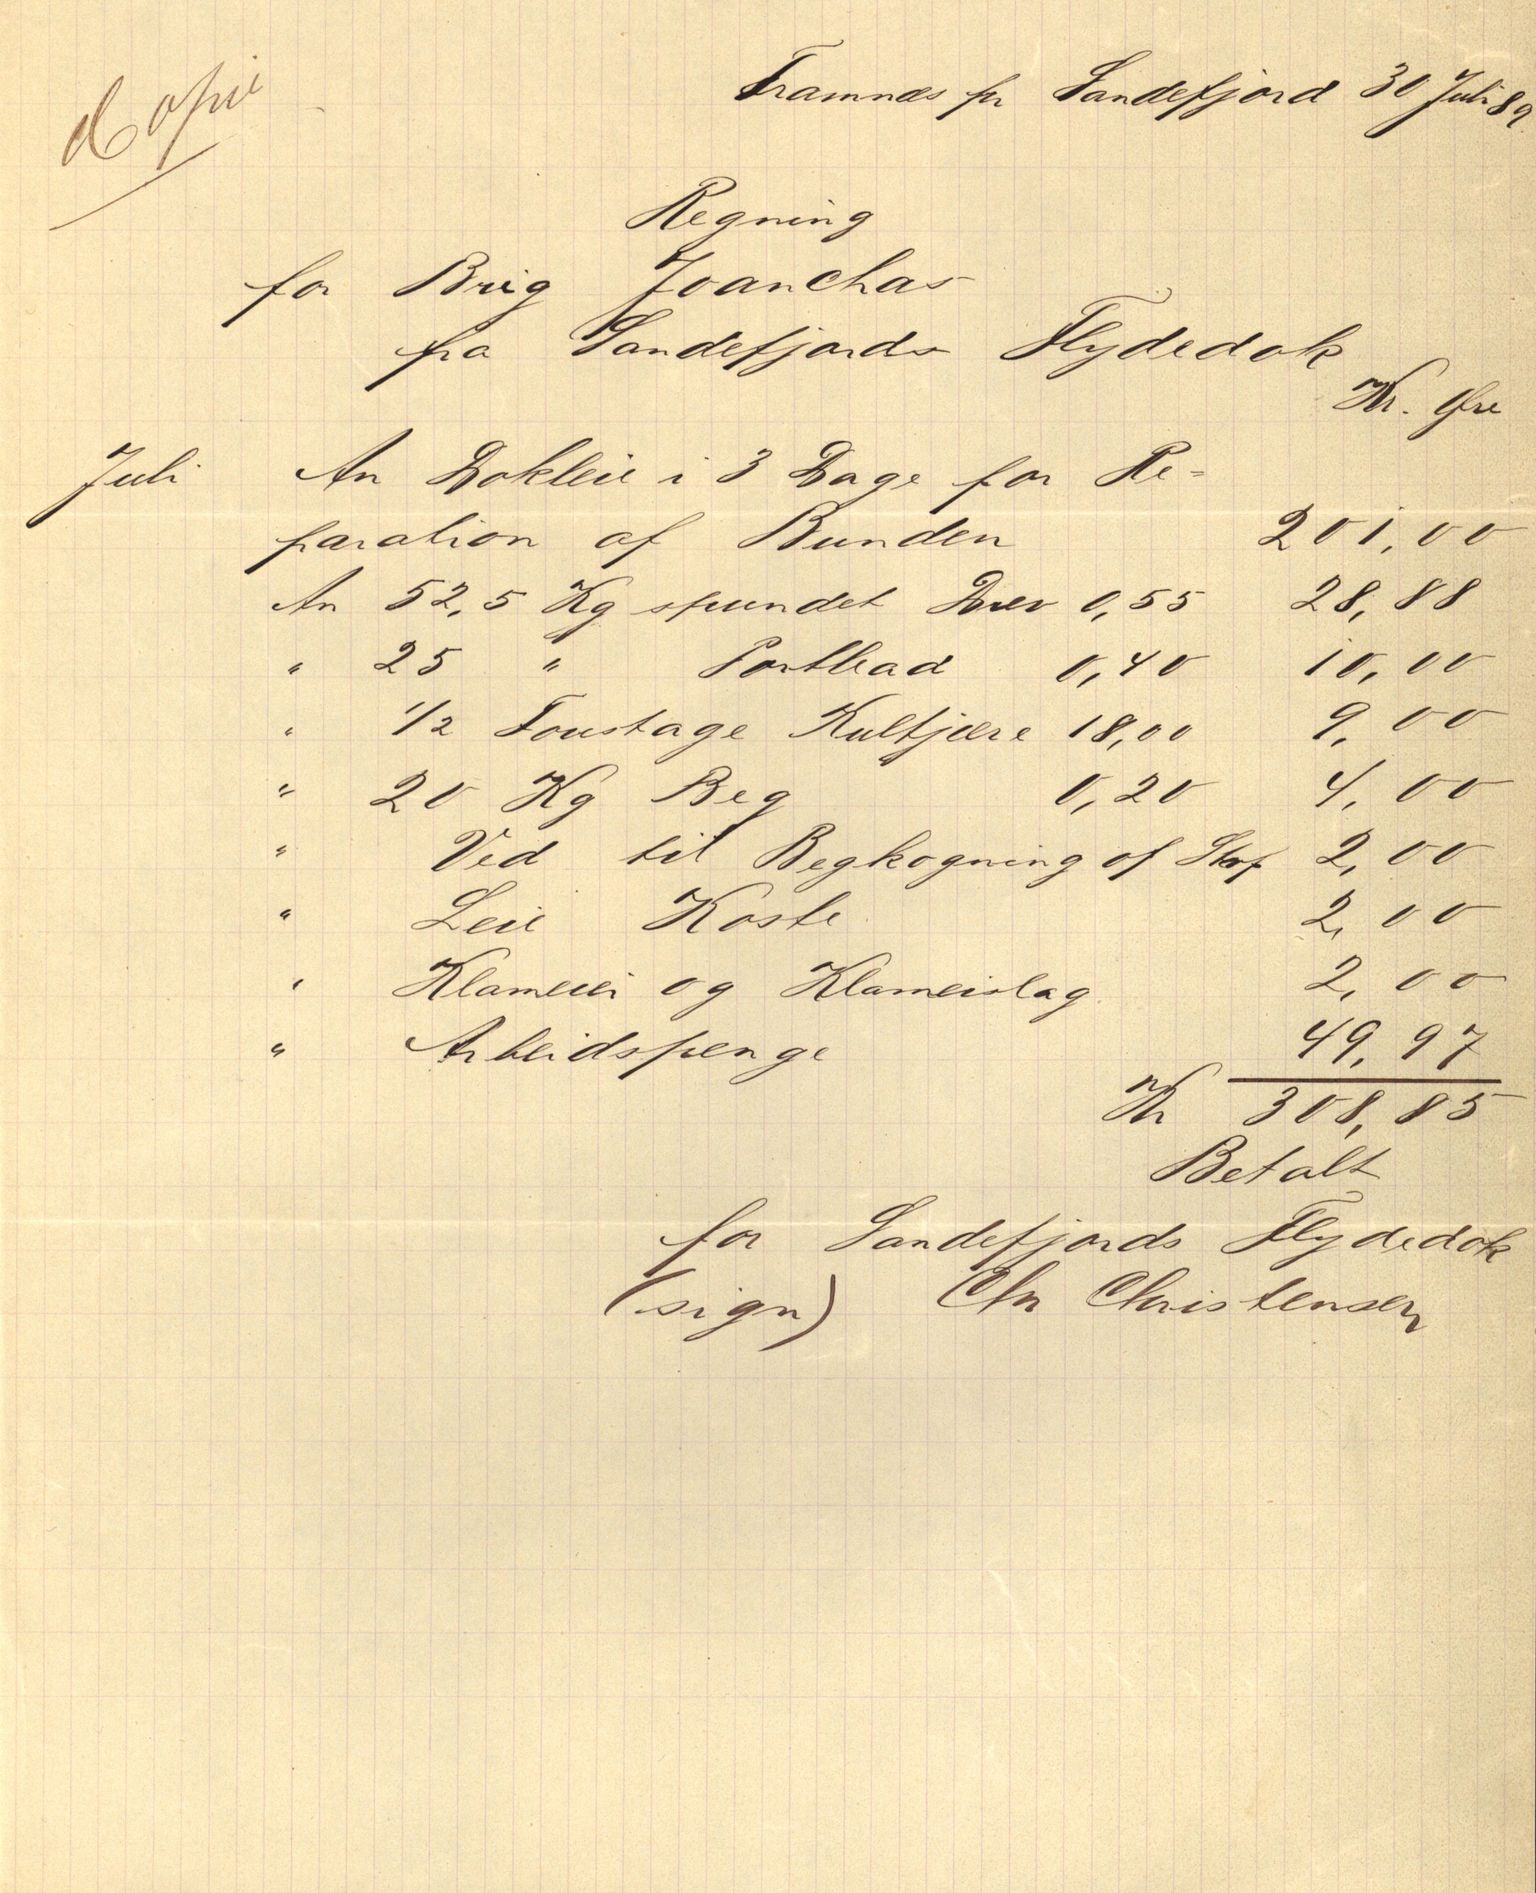 Copie
Framnæs pr Sandefjord 30 Juli 89
Regning
for Brig Joanchas
fra Sandefjords Flydedok
Kr. Øre
Juli An Dokleie i 3 Dage for Re=
paration af Bunden 201,00
An 52,5 Kg spundet Drev 0,55 28,88
" 25 " Portlead 0,40 10,00
" 1/2 Foustage Kultjære 18,00 9,00
" 20 Kg Beg 0,20 4,00
" Ved til Begkogning af 2,00
" Leie Koste 2,00
" og 2,00
" Arbeidspenge 49,97
Kr 308,85
Betalt
for Sandefjords Flydedok
(sign) Chr Christensen